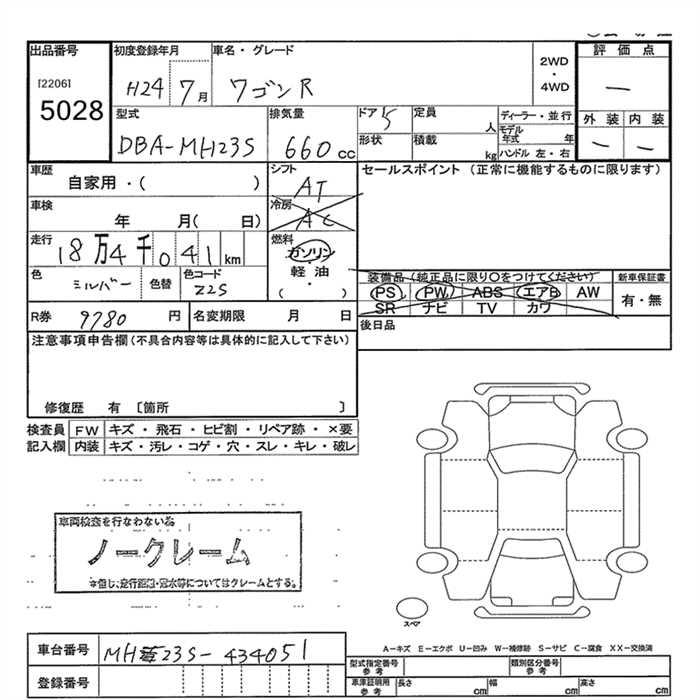 出品番号 初度登録年月 車名・グレード 評価点
[2206] 5028 H24 7月 ワゴンR 2WD・4WD —
型式 排気量 ドア 定員 ディーラー・並行 外装 内装
DBA-MH23S 660cc 5 人 モデル年式 年 — —
形状 積載 kg ハンドル 左・右
車歴 シフト セールスポイント (正常に機能するものに限ります)
自家用・( ) AT
車検 冷房
年 月( 日) AC
走行 燃料
18万4千041km ガソリン
色 色替 色コード 軽油
シルバー Z2S ・( )
装備品 (純正品に限り〇をつけてください) 新車保証書
PS PW ABS エアB AW 有・無
SR ナビ TV カワ
R券 9780円 名変期限 月 日
後日品
注意事項申告欄(不具合内容等は具体的に記入して下さい)
修復歴 有 〔箇所 〕
検査員 FW キズ・飛石・ヒビ割・リペア跡・×要
記入欄 内装 キズ・汚レ・コゲ・穴・スレ・キレ・破レ
車両検査を行なわない為
ノークレーム
※但し、走行距離・冠水等についてはクレームとする。
スペア
A-キズ E-エクボ U-凹み W-補修跡 S-サビ C-腐食 XX-交換済
車台番号 MH23S-434051
型式指定番号 参考 類別区分番号 参考
登録番号
車庫証明用 参考 長さ cm 幅 cm 高さ cm